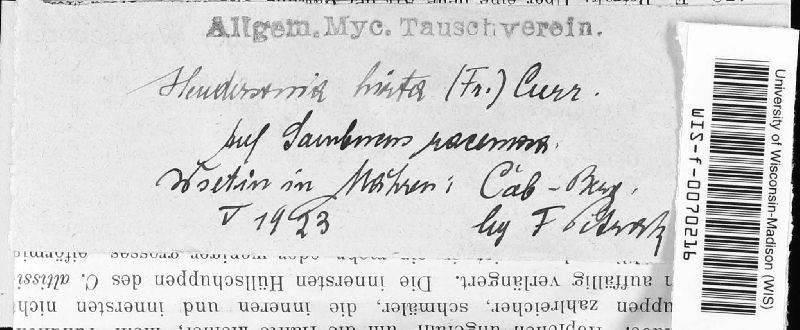 Allgem. Myc. Tauschverein.
Hendersonia hirta (Fr.) Curr.
auf Sambucus racemosa.
Wsetin in Mähren: Čáb-Berg.
V 1923 leg F Petrak
University of Wisconsin-Madison (WIS)
WIS-f-0070216
auffällig verlängert. Die innersten Hüllschuppen des C. altissi
uppen zahlreicher, schmäler, die inneren und innersten nicht